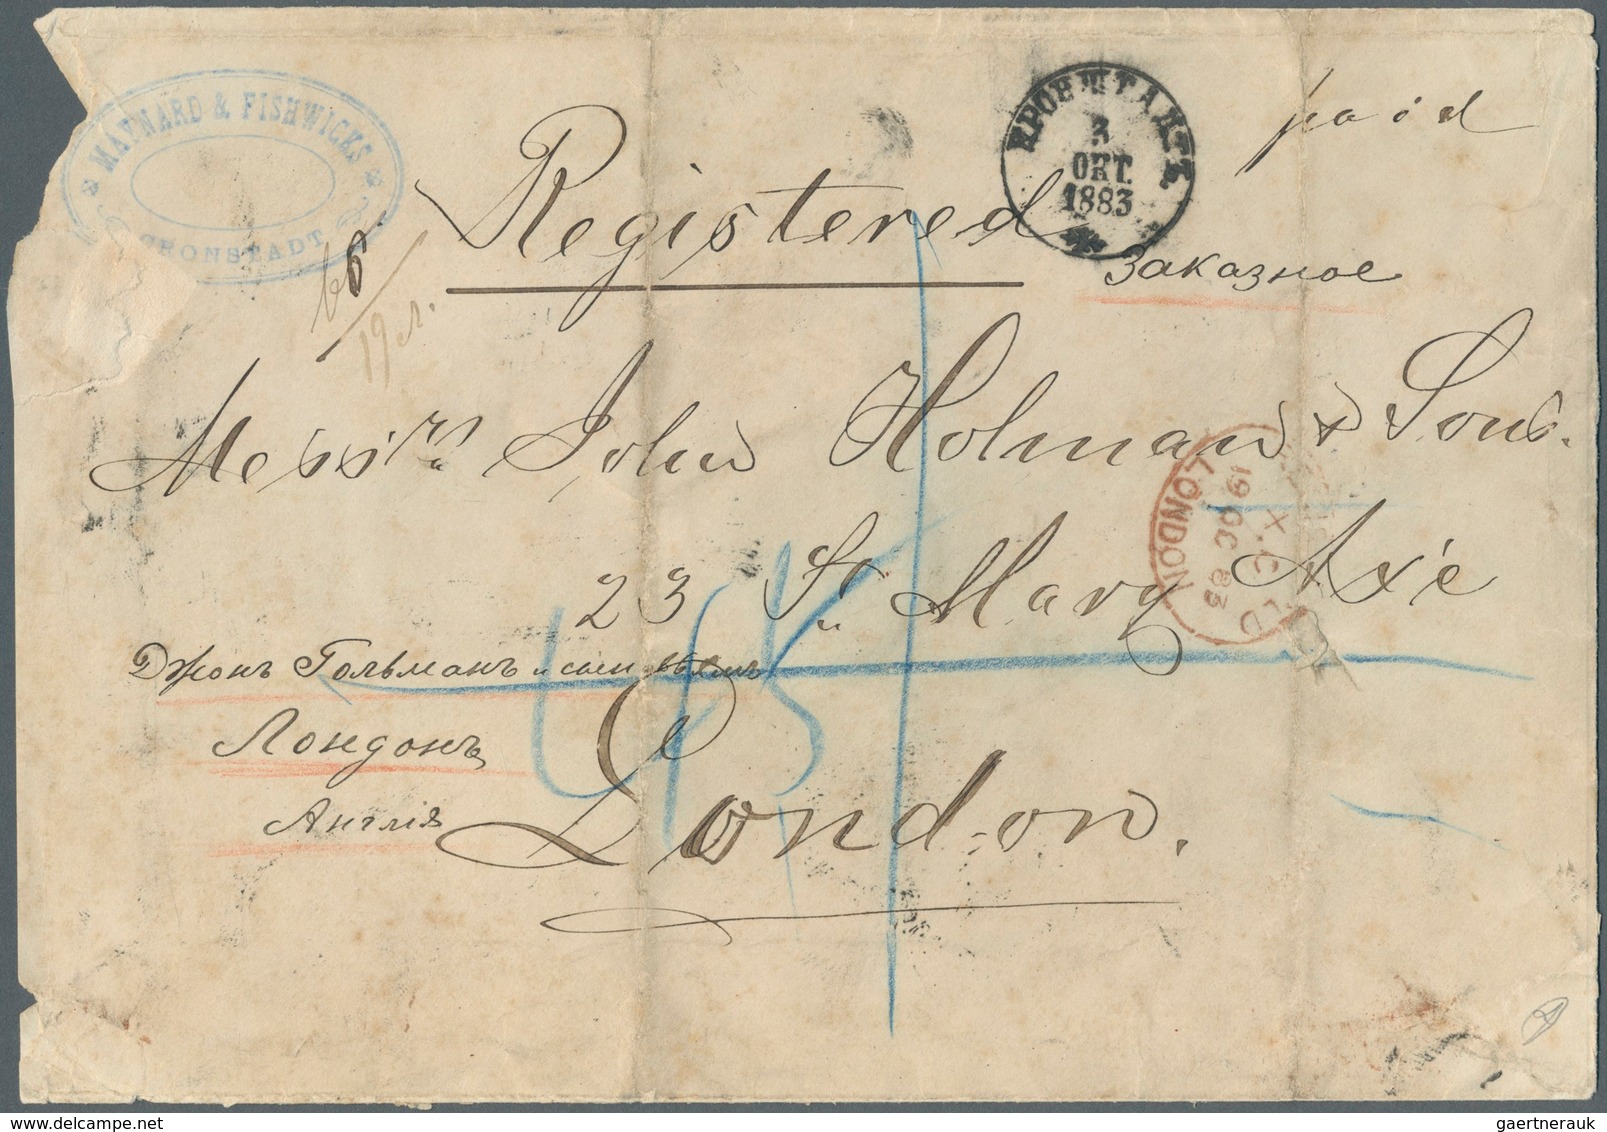 MAYNARD & FISHWICKS
CRONSTADT
КРОНШТАДТЪ
3
ОКТ.
1883
paid
Registered
Заказное
19 л.
Messrs. John Holman & Sons.
LONDON
19 OC 83
X.C
23 St. Mary Axe
Джонъ Гольманъ и
Лондонъ
Англія
London.
gaertnerauk